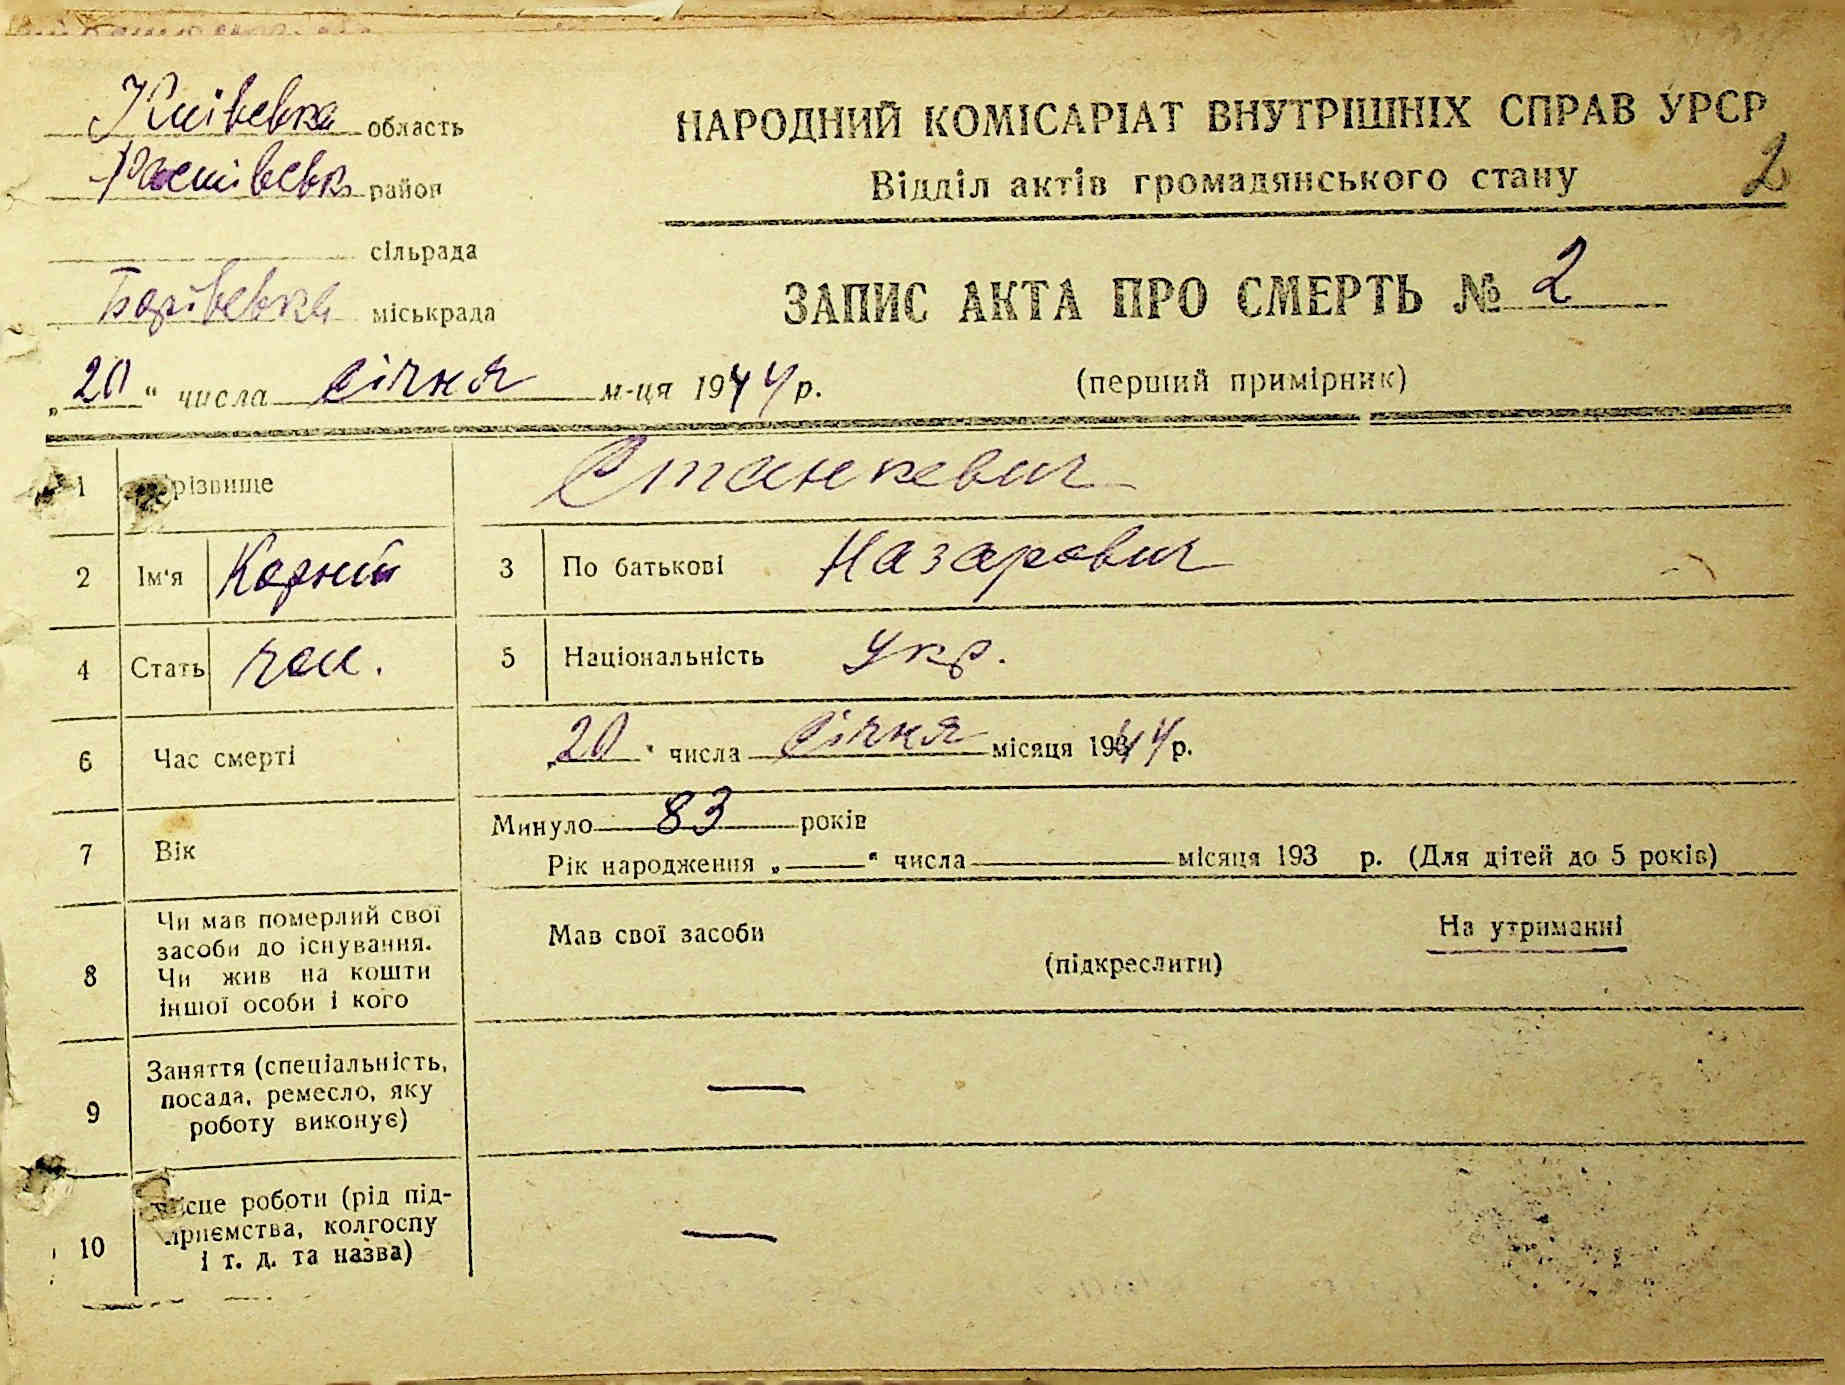 Київська область
район
сільрада
міськрада
„20“ числа січня м-ця 1944 р.
НАРОДНИЙ КОМІСАРІАТ ВНУТРІШНІХ СПРАВ УРСР
Відділ актів громадянського стану
2
ЗАПИС АКТА ПРО СМЕРТЬ № 2
(перший примірник)
1 Прізвище Станкевич
2 Ім'я Корній 3 По батькові Назарович
4 Стать чол. 5 Національність укр.
6 Час смерті „20“ числа січня місяця 1944 р.
7 Вік Минуло 83 років
Рік народження „ “ числа місяця 193 р. (Для дітей до 5 років)
8 Чи мав померлий свої
засоби до існування.
Чи жив на кошти
іншої особи і кого
Мав свої засоби На утриманні
(підкреслити)
9 Заняття (спеціальність,
посада, ремесло, яку
роботу виконує)
—
10 Місце роботи (рід під-
приємства, колгоспу
і т. д. та назва)
—